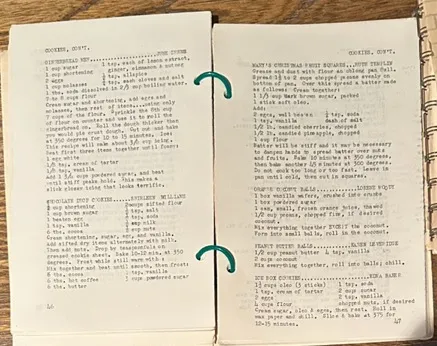 COOKIES, CON'T.
GINGERBREAD MEN
1 cup sugar
1 cup shortening
2 eggs
1 cup molasses
1 tsp. soda dissolved in 2/3 cup boiling water.
7 to 8 cups flour
Cream sugar and shortening, add eggs and
molasses, then rest of items...using only
7 cups of the flour. Sprinkle the 8th cup
of flour on counter and use it to roll the
gingerbread on. Roll the dough thicker than
you would pie crust dough. Cut out and bake
at 350 degrees for 12 to 15 minutes. Icing:
This recipe will make about 3/4 cup icing.
Beat first three items together until foamy:
1 egg white
1/8 tsp. cream of tarter
1/4 tsp. vanilla
add 1 3/4 cups powdered sugar, and beat
until stiff peaks hold. This makes a
slick glaze icing that looks terrific.
CHOCOLATE DROP COOKIES
1 cup shortening
1 cup brown sugar
2 beaten egg
1 tsp. vanilla
6 tbs. cocoa
Cream shortening, sugar, egg, and vanilla.
Add sifted dry items alternately with milk.
Then add nuts. Drop by teaspoonfuls on
greased cookie sheet. Bake 10-12 min. at 350
degrees. Frost while still warm with:
Mix together and beat until smooth, then frost:
6 tbs. cocoa
6 tbs. hot coffee
6 tbs. butter
1 tsp. vanilla
3 cups powdered sugar
46
COOKIES, CON'T.
MARY'S CHRISTMAS FRUIT SQUARES
Grease and dust with flour an oblong pan
bottom of pan. Over this spread a batter made
as follows: Cream together:
1 1/3 cups dark brown sugar, packed
1 stick soft oleo.
Add:
2 eggs, well beaten
1 tsp. vanilla
dash of salt
1/2 lb. candied cherries, chopped
1/2 lb. candied pineapple, chopped
1 cup flour
Batter will be stiff and it may be necessary
to dampen hands to spread batter over nuts
and fruits. Bake 10 minutes at 350 degrees,
then bake another 45 minutes at 300 degrees.
Do not cook too long or too fast. Leave in
pan until cold, then cut in squares.
ORANGE COCONUT BALLS
1 box vanilla wafers, crushed into crumbs
1 box powdered sugar
1 can, small, frozen orange juice, thawed
1/2 cup pecans, chopped fine, if desired
coconut.
Mix everything together EXCEPT the coconut.
Form into small balls, roll in the coconut.
PEANUT BUTTER BALLS
1/2 cup peanut butter
2 cup coconut
Mix everything together, roll into balls; chill.
ICE BOX COOKIES
1 1/2 cups oleo (3 sticks)
1 tsp. cream of tarter
2 eggs
4 cups flour
1 tsp. soda
2 cups sugar
2 tsp. vanilla
chopped nuts, if desired
Cream sugar, oleo & eggs, then rest. Roll in
wax paper and chill. Slice & bake at 375 for
12-15 minutes.
47